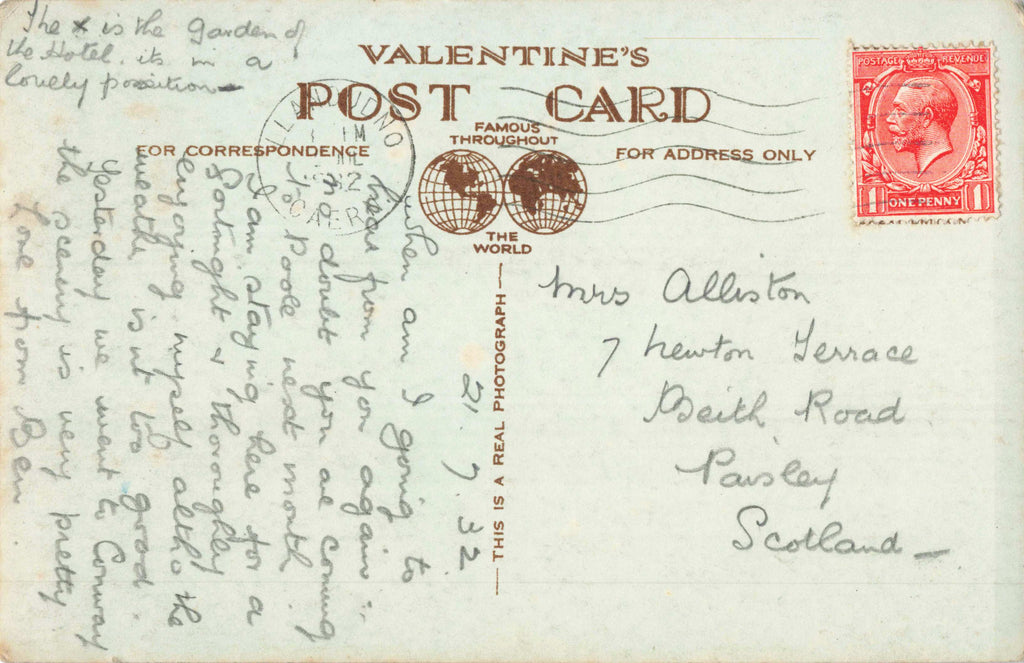 The x is the Garden of
the Hotel. its in a
lovely position -
VALENTINE'S
POST CARD
FAMOUS
THROUGHOUT
THE
WORLD
FOR CORRESPONDENCE
FOR ADDRESS ONLY
LLANDUDNO
CAER
POSTAGE REVENUE
1 ONE PENNY 1
THIS IS A REAL PHOTOGRAPH
21.7.32.
when am I going to
hear from you again :-
no doubt you are coming
to Poole next month.
I am staying here for a
fortnight & thoroughly
enjoying myself altho the
weather isnt too good.
Yesterday we went to Conway
the scenery is very pretty
Love from Ben
Mrs Alliston
7 Newton Terrace
Beith Road
Paisley
Scotland -